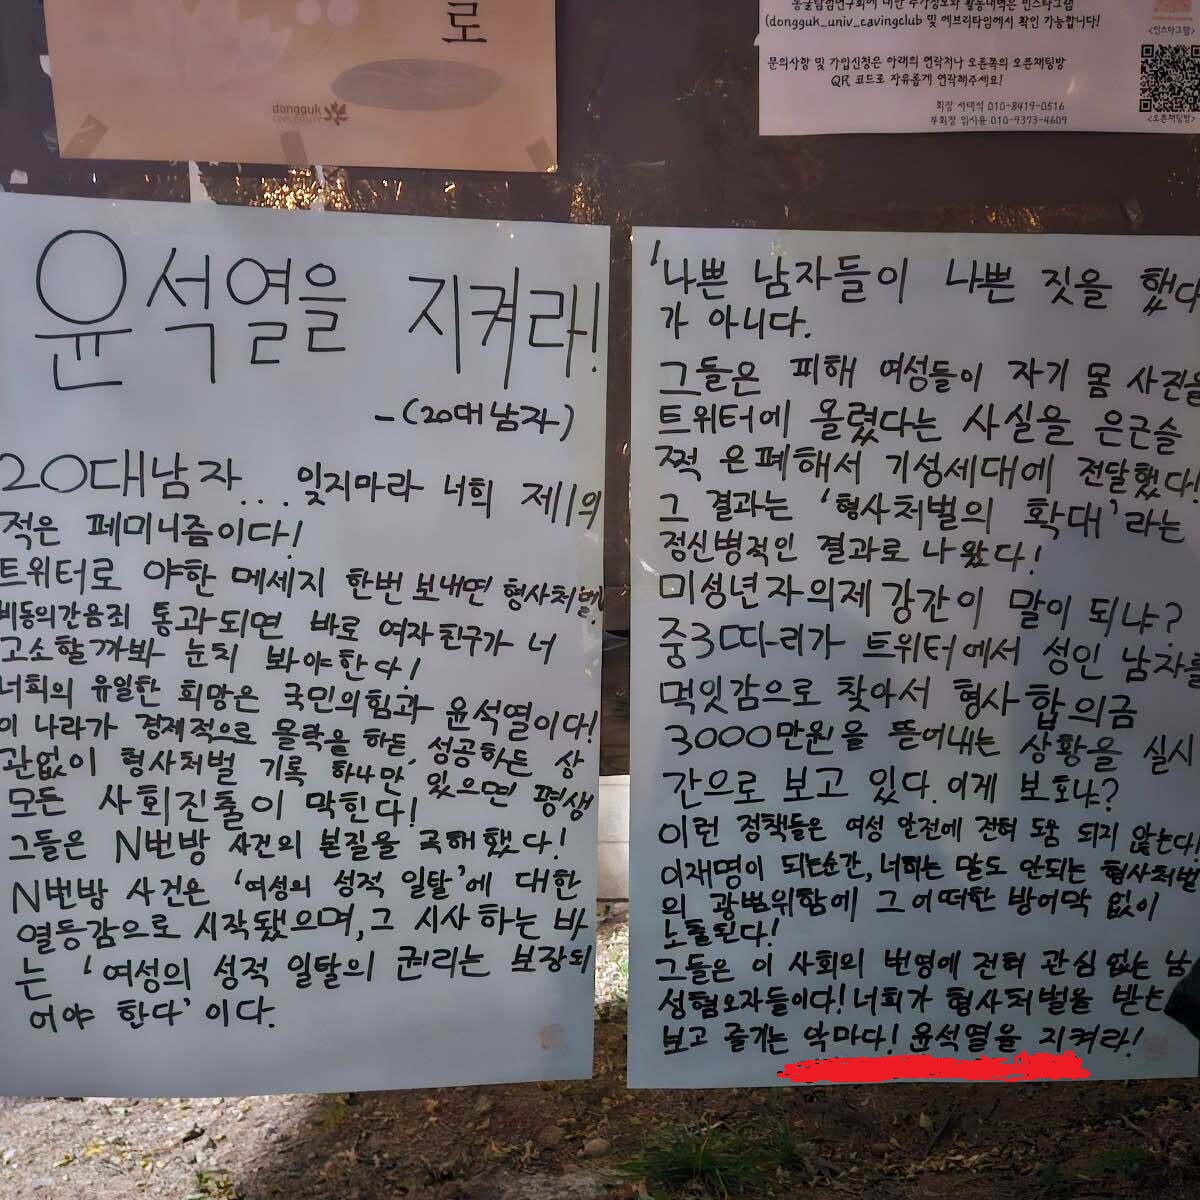 로
dongguk
UNIVERSITY
동굴탐험연구회에 대한 추가정보와 활동내역은 인스타그램
(dongguk_univ_cavingclub 및 에브리타임에서 확인 가능합니다!
문의사항 및 가입신청은 아래의 연락처나 오른쪽의 오픈채팅방
QR 코드로 자유롭게 연락해주세요!
회장 서덕석 010-8419-0516
부회장 임시윤 010-9373-4609
<인스타그램>
<오픈채팅방>
윤석열을 지켜라!
-(20대 남자)
20대남자... 잊지마라 너희 제1의
적은 페미니즘이다!
트위터로 야한 메세지 한번 보내면 형사처벌!
비동의간음죄 통과되면 바로 여자친구가 너
고소할까봐 눈치 봐야한다!
너희의 유일한 희망은 국민의힘과 윤석열이다!
이 나라가 경제적으로 몰락을 하든, 성공하든 상
관없이 형사처벌 기록 하나만 있으면 평생
모든 사회진출이 막힌다!
그들은 N번방 사건의 본질을 곡해했다!
N번방 사건은 '여성의 성적 일탈'에 대한
열등감으로 시작됐으며, 그 시사하는 바
는 '여성의 성적 일탈의 권리는 보장되
어야 한다'이다.
'나쁜 남자들이 나쁜 짓을 했다
가 아니다.
그들은 피해 여성들이 자기 몸 사진을
트위터에 올렸다는 사실을 은근슬
쩍 은폐해서 기성세대에 전달했다!
그 결과는 '형사처벌의 확대'라는
정신병적인 결과로 나왔다!
미성년자의제강간이 말이 되냐?
중3따리가 트위터에서 성인 남자를
먹잇감으로 찾아서 형사합의금
3000만원을 뜯어내는 상황을 실시
간으로 보고 있다. 이게 보호냐?
이런 정책들은 여성 안전에 전혀 도움 되지 않는다!
이재명이 되는순간, 너희는 말도 안되는 형사처벌
의 광범위함에 그 어떠한 방어막 없이
노출된다!
그들은 이 사회의 번영에 전혀 관심 없는 남
성혐오자들이다! 너희가 형사처벌을 받는
보고 즐기는 악마다! 윤석열을 지켜라!